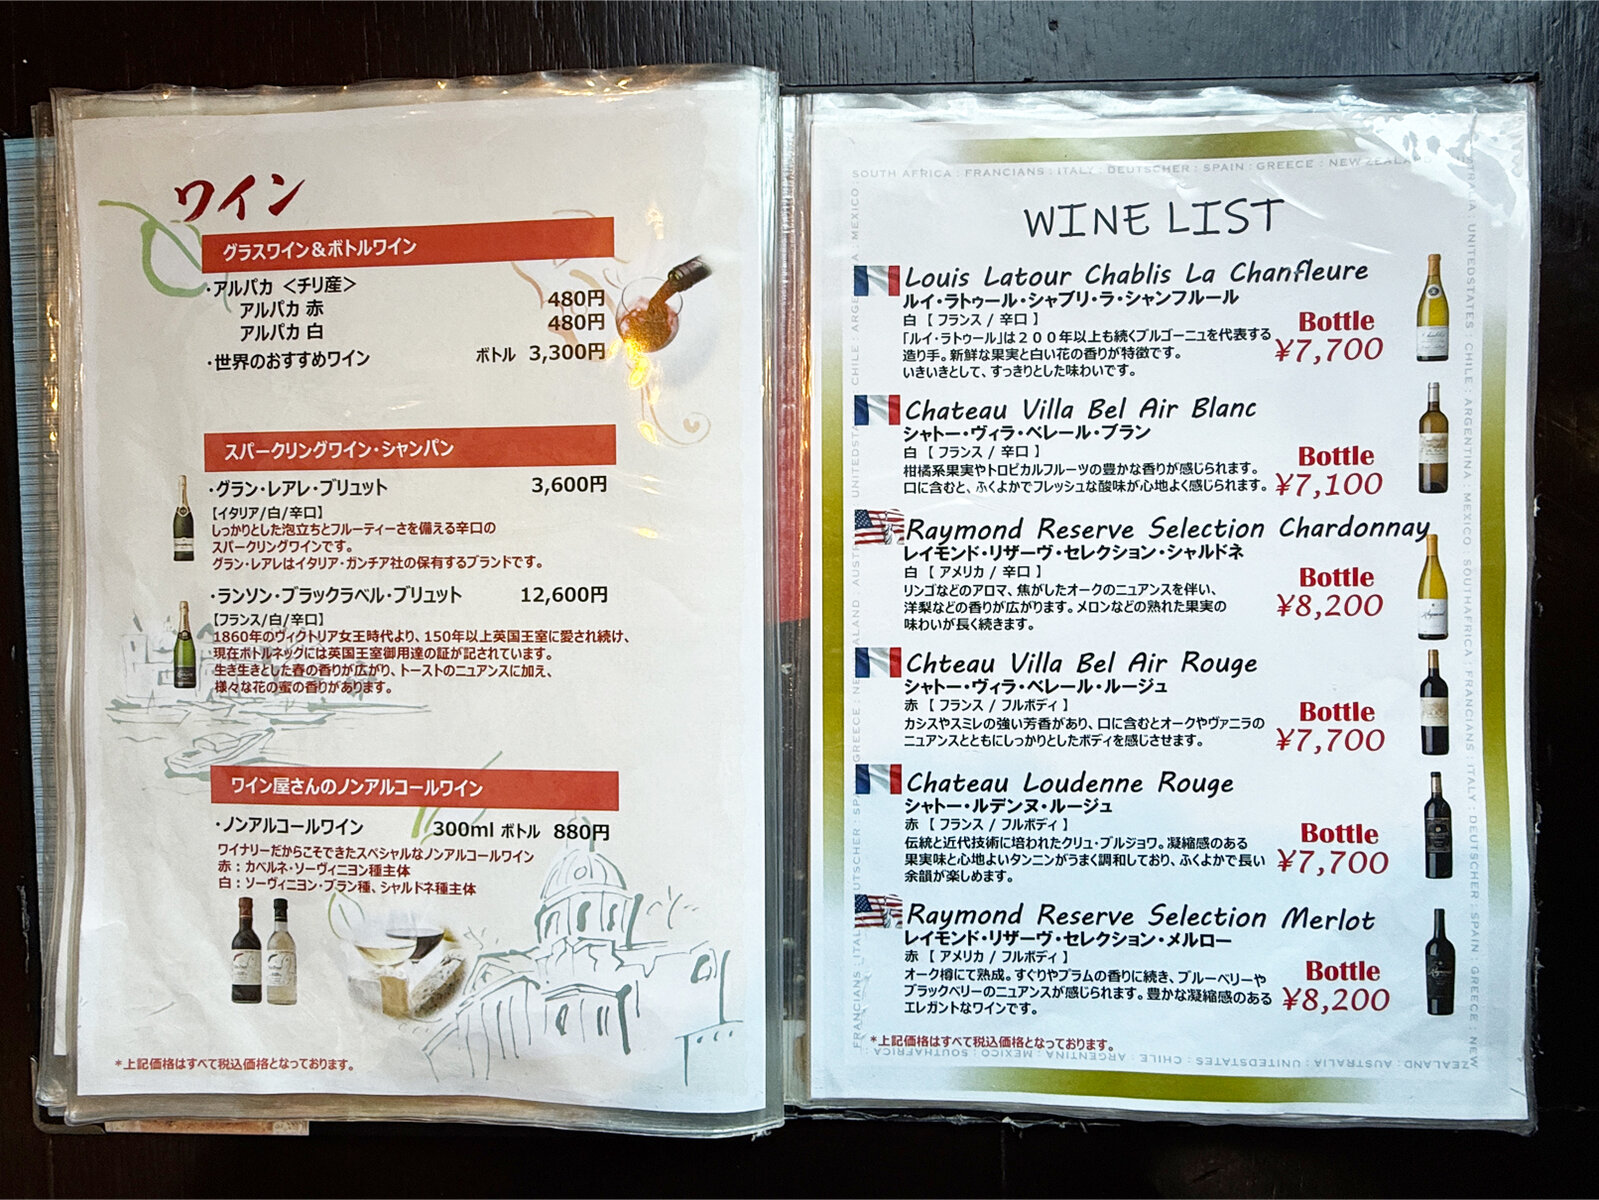 ワイン
グラスワイン＆ボトルワイン
・アルパカ ＜チリ産＞
アルパカ 赤 480円
アルパカ 白 480円
・世界のおすすめワイン ボトル 3,300円
スパークリングワイン・シャンパン
・グラン・レアレ・ブリュット 3,600円
【イタリア/白/辛口】
しっかりとした泡立ちとフルーティーさを備える辛口の
スパークリングワインです。
グラン・レアレはイタリア・ガンチア社の保有するブランドです。
・ランソン・ブラックラベル・ブリュット 12,600円
【フランス/白/辛口】
1860年のヴィクトリア女王時代より、150年以上英国王室に愛され続け、
現在ボトルネックには英国王室御用達の証が記されています。
生き生きとした春の香りが広がり、トーストのニュアンスに加え、
様々な花の蜜の香りがあります。
ワイン屋さんのノンアルコールワイン
・ノンアルコールワイン 300ml ボトル 880円
ワイナリーだからこそできたスペシャルなノンアルコールワイン
赤：カベルネ・ソーヴィニヨン種主体
白：ソーヴィニヨン・ブラン種、シャルドネ種主体
＊上記価格はすべて税込価格となっております。
SOUTH AFRICA : FRANCIANS : ITALY : DEUTSCHER : SPAIN : GREECE : NEW ZEALAND
WINE LIST
Louis Latour Chablis La Chanfleure
ルイ・ラトゥール・シャブリ・ラ・シャンフルール
白 【 フランス / 辛口 】
「ルイ・ラトゥール」は２００年以上も続くブルゴーニュを代表する
造り手。新鮮な果実と白い花の香りが特徴です。
いきいきとして、すっきりとした味わいです。
Bottle
¥7,700
Chateau Villa Bel Air Blanc
シャトー・ヴィラ・ベレール・ブラン
白 【 フランス / 辛口 】
柑橘系果実やトロピカルフルーツの豊かな香りが感じられます。
口に含むと、ふくよかでフレッシュな酸味が心地よく感じられます。
Bottle
¥7,100
Raymond Reserve Selection Chardonnay
レイモンド・リザーヴ・セレクション・シャルドネ
白 【 アメリカ / 辛口 】
リンゴなどのアロマ、焦がしたオークのニュアンスを伴い、
洋梨などの香りが広がります。メロンなどの熟れた果実の
味わいが長く続きます。
Bottle
¥8,200
Chteau Villa Bel Air Rouge
シャトー・ヴィラ・ベレール・ルージュ
赤 【 フランス / フルボディ 】
カシスやスミレの強い芳香があり、口に含むとオークやヴァニラの
ニュアンスとともにしっかりとしたボディを感じさせます。
Bottle
¥7,700
Chateau Loudenne Rouge
シャトー・ルデンヌ・ルージュ
赤 【 フランス / フルボディ 】
伝統と近代技術に培われたクリュ・ブルジョワ。凝縮感のある
果実味と心地よいタンニンがうまく調和しており、ふくよかで長い
余韻が楽しめます。
Bottle
¥7,700
Raymond Reserve Selection Merlot
レイモンド・リザーヴ・セレクション・メルロー
赤 【 アメリカ / フルボディ 】
オーク樽にて熟成。すぐりやプラムの香りに続き、ブルーベリーや
ブラックベリーのニュアンスが感じられます。豊かな凝縮感のある
エレガントなワインです。
Bottle
¥8,200
＊上記価格はすべて税込価格となっております。
ZEALAND : AUSTRALIA : UNITEDSTATES : CHILE : ARGENTINA : MEXICO : SOUTHAFRICA :
UNITEDSTATES : CHILE : ARGENTINA : MEXICO : SOUTHAFRICA : FRANCIANS : ITALY : DEUTSCHER : SPAIN : GREECE : NEW